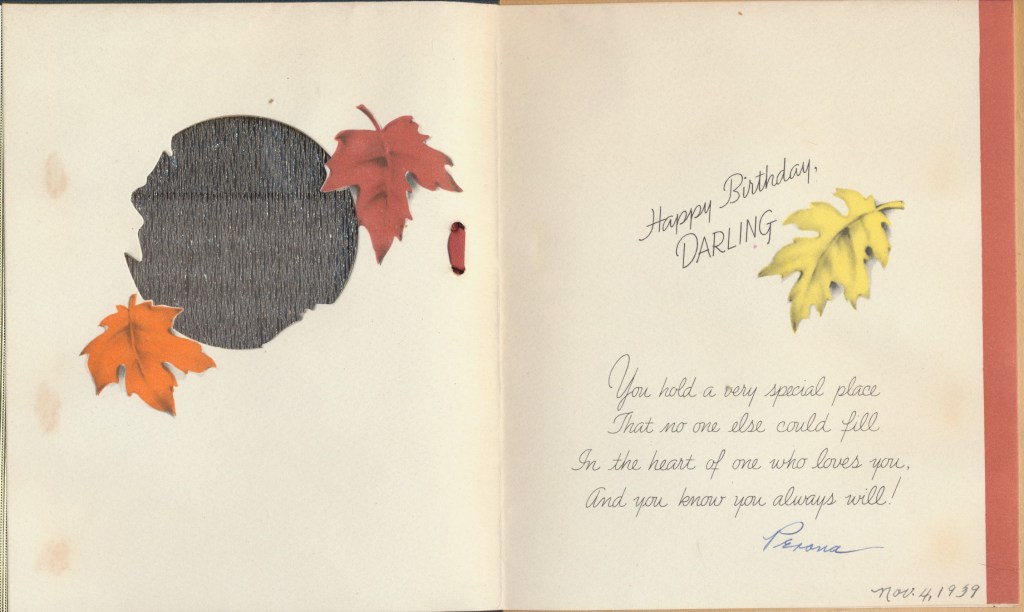 Happy Birthday,
DARLING
You hold a very special place
That no one else could fill
In the heart of one who loves you,
And you know you always will!
Perona
Nov. 4, 1939